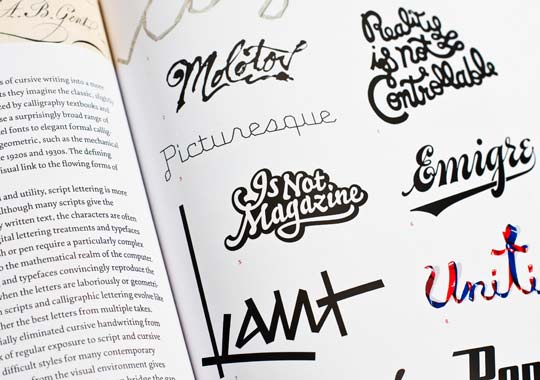 A. B. Gent.
s of cursive writing into a more
ts they imagine the classic, slightly
zed by calligraphy textbooks and
se a surprisingly broad range of
el fonts to elegant formal callig-
geometric, such as the mechanical
e 1920s and 1930s. The defining
visual link to the flowing forms of
and utility, script lettering is more
although many scripts give the
y written text, the characters are often
gital lettering treatments and typefaces
h or pen require a particularly complex
o the mathematical realm of the computer.
and typefaces convincingly reproduce the
when the letters are laboriously or geometri-
n scripts and calligraphic lettering evolve like
her the best letters from multiple takes.
ially eliminated cursive handwriting from
k of regular exposure to script and cursive
difficult styles for many contemporary
from the visual environment gives
bridge the gap
Molotov
Reality
is not
Controllable
Picturesque
Is Not
Magazine
Emigre
Kant
Unit